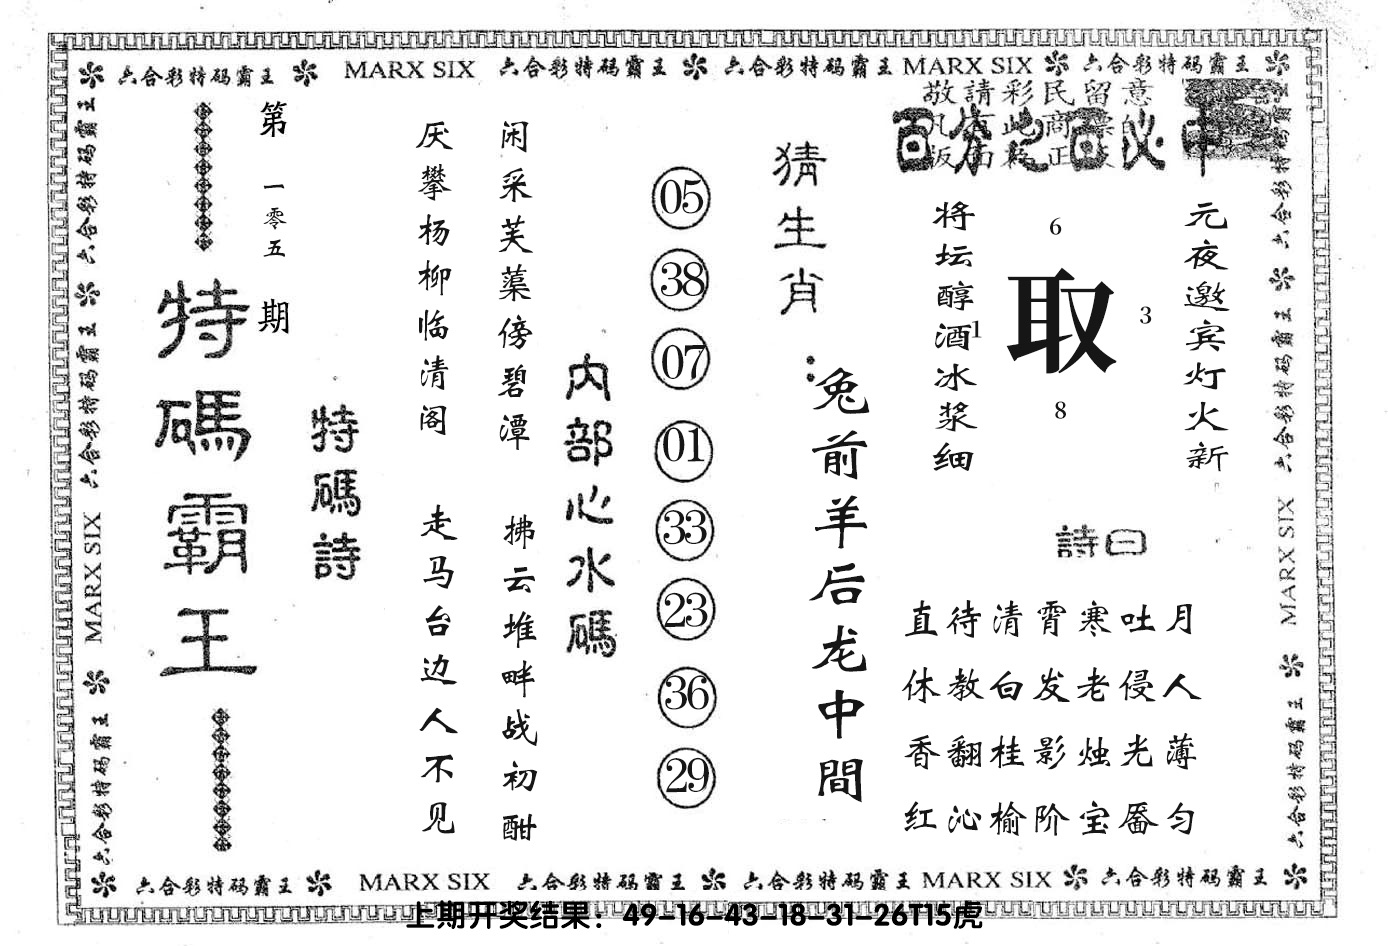 六合彩特码霸王 MARX SIX 六合彩特码霸王 六合彩特码霸王 MARX SIX 六合彩特码霸王
六合彩特码霸王 六合彩特码霸王 MARX SIX 六合彩特码霸王
第一零五期
特碼霸王
特碼詩
厌攀杨柳临清阁
闲采芙蕖傍碧潭
走马台边人不见
拂云堆畔战初酣
内部心水碼
05
38
07
01
33
23
36
29
猜生肖：
兔前羊后龙中間
敬請彩民留意
百分之百必中
将坛醇酒冰浆细
元夜邀宾灯火新
6
1
取
3
8
詩曰
直待清霄寒吐月
休教白发老侵人
香翻桂影烛光薄
红沁榆阶宝靥匀
六合彩特码霸王 六合彩特码霸王 MARX SIX 六合彩特码霸王
六合彩特码霸王 MARX SIX 六合彩特码霸王 六合彩特码霸王 MARX SIX 六合彩特码霸王
上期开奖结果：49-16-43-18-31-26T15虎